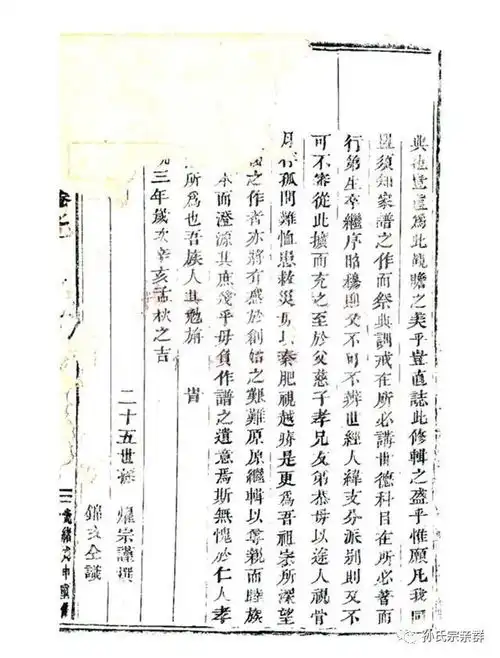 典也豈遑為此觀瞻之美乎豈直誌此修輯之盛乎惟願凡我同
須知家譜之作而祭典訓戒在所必講世德科目在所必著而
行第生卒繼序昭穆則又不可不辨世經人緯支分派別則又不
可不審從此擴而充之至於父慈子孝兄友弟恭毋以途人視骨
孤問難恤患救災毋以秦肥視越瘠是更為吾祖宗所深望
之作者亦將有感於創始之艱難原原繼輯以尊親而睦族
本而澄源其庶幾乎毋負作譜之遺意焉斯無愧於仁人孝
所為也吾族人其勉旃 峕
三年歲次辛亥孟秋之吉
二十五世孫 燿宗謹撰
錦 仝識
卷之
光緒戊申
孙氏宗亲群